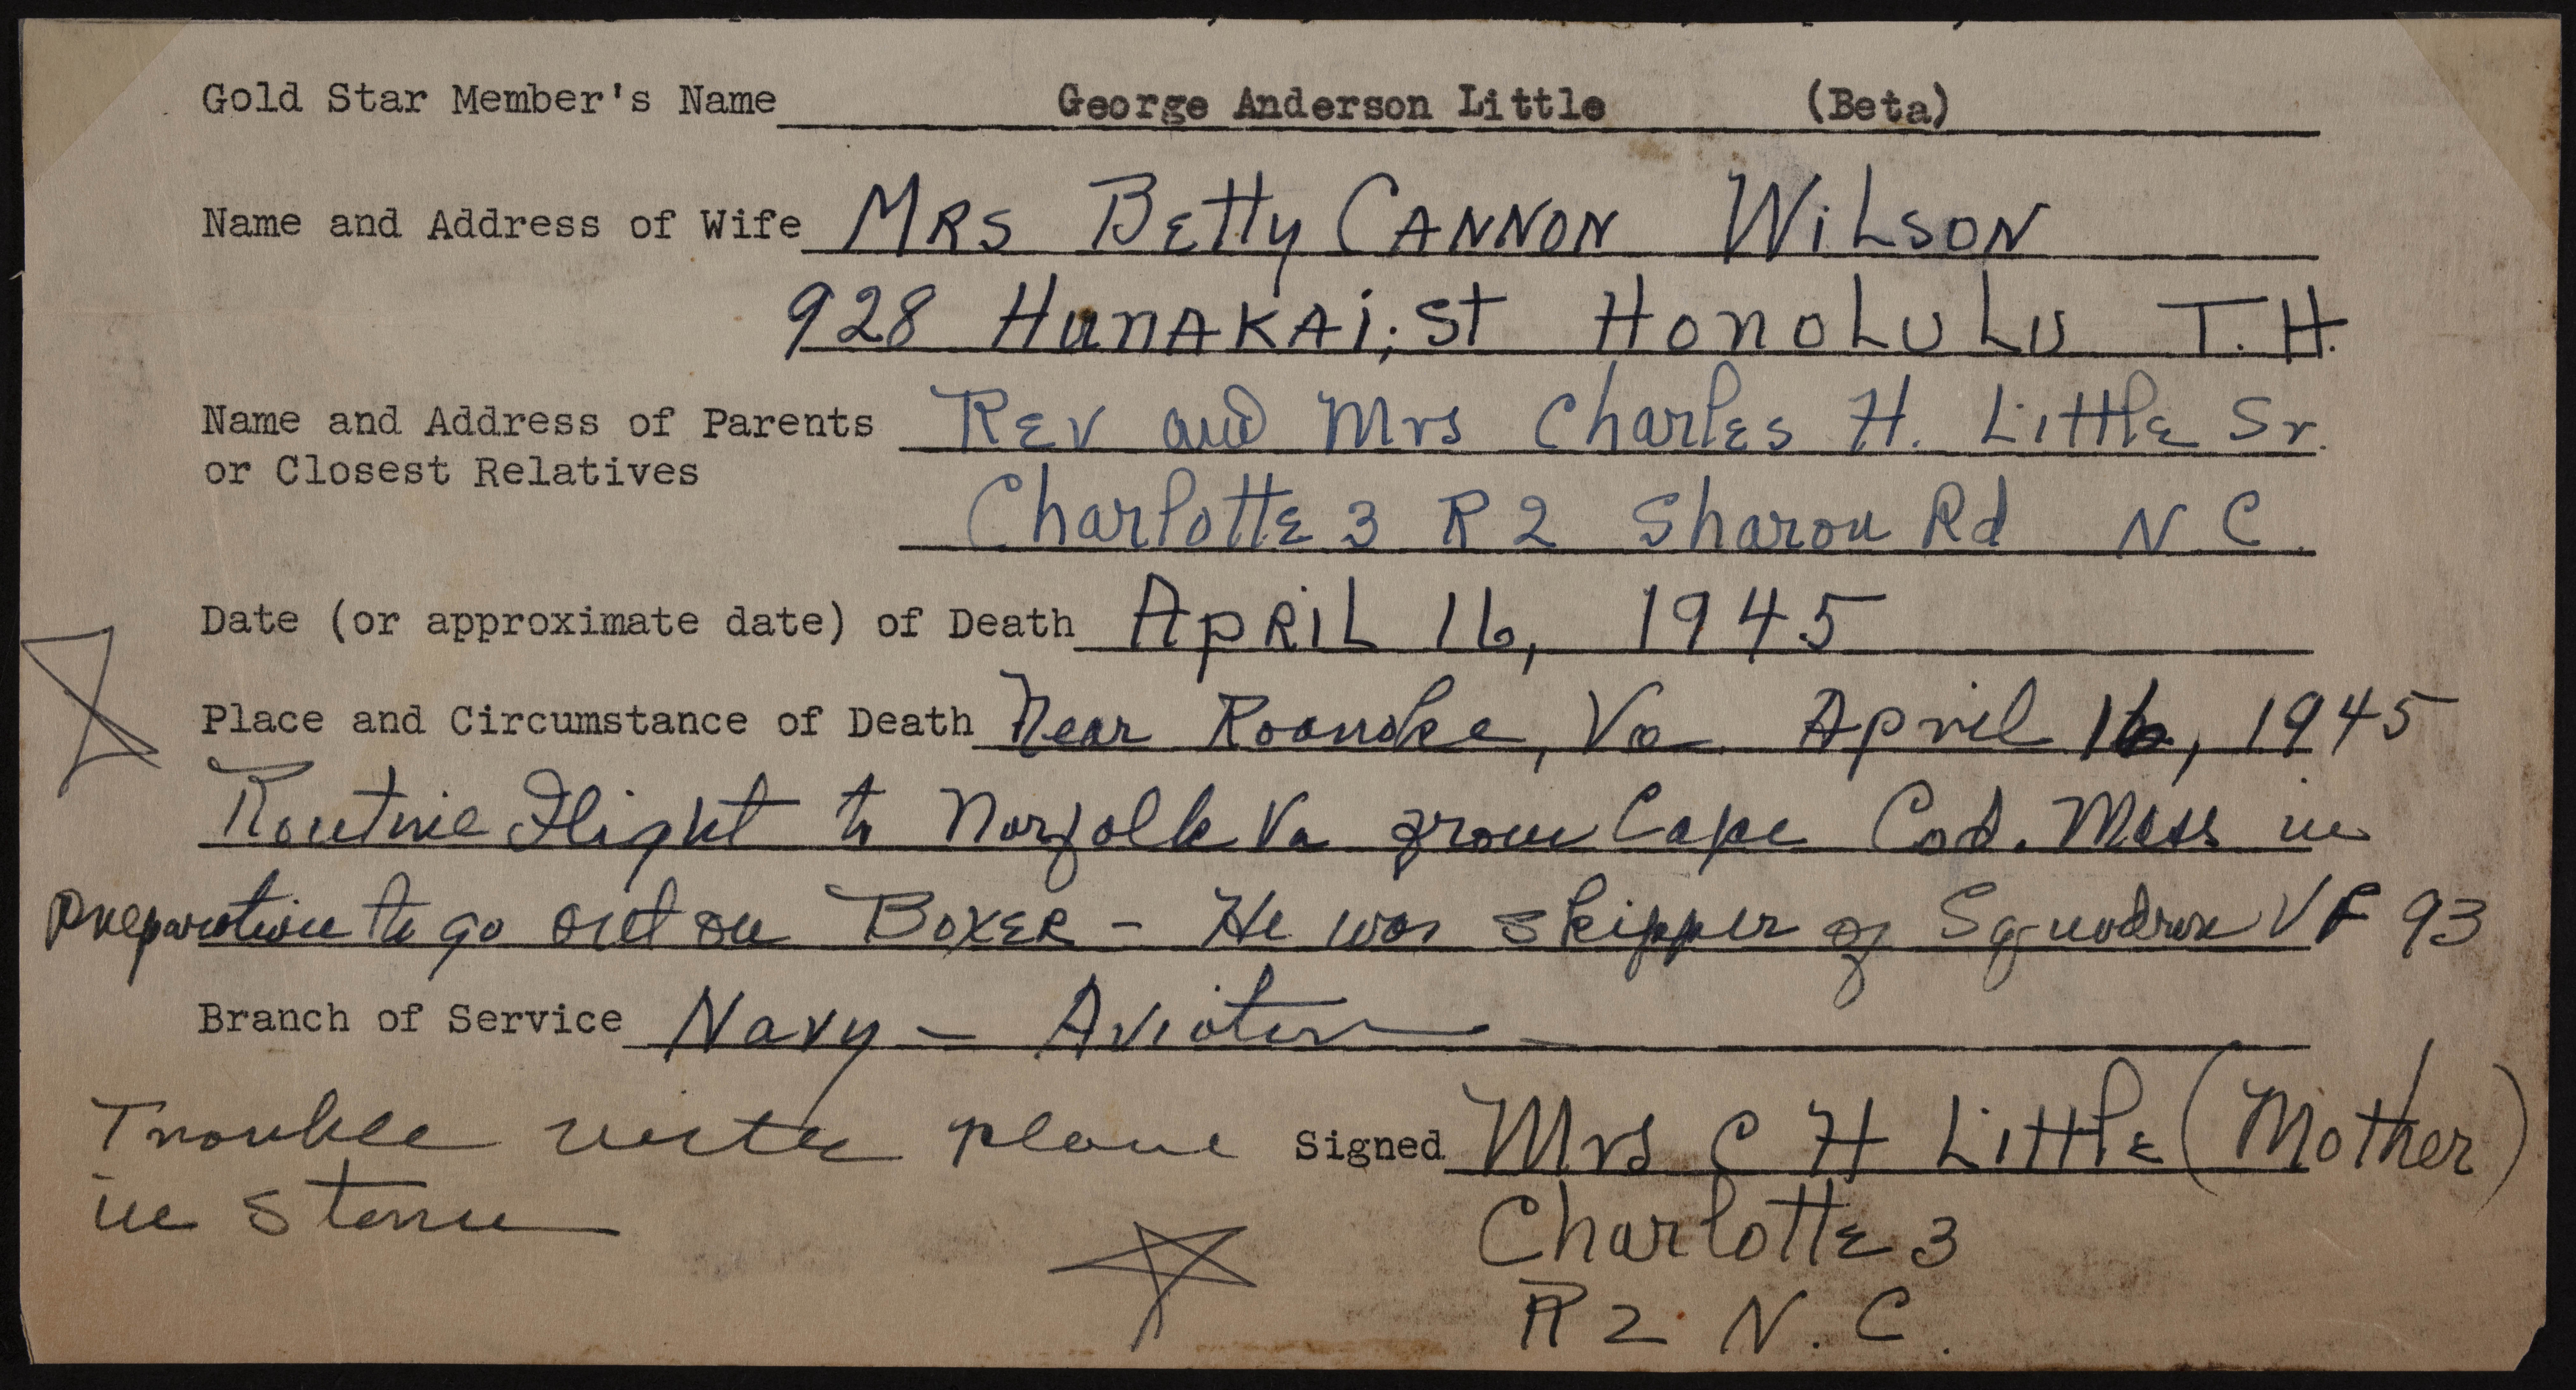 Gold Star Member's Name George Anderson Little (Beta)
Name and Address of Wife MRS BETTY CANNON WILSON
928 HUNAKAI; St HONOLULU T.H.
Name and Address of Parents Rev and Mrs Charles H. Little Sr.
or Closest Relatives
Charlotte 3 R 2 Sharon Rd N C.
Date (or approximate date) of Death APRIL 16, 1945
Place and Circumstance of Death Near Roanoke, Va April 16, 1945
Routine Flight to Norfolk Va from Cape Cod. Mass in
preparation to go out on BOXER - He was skipper of Squadron VF 93
Branch of Service Navy - Aviator
Trouble with plane
in storm
Signed Mrs C H Little (Mother)
Charlotte 3
R 2 N. C.